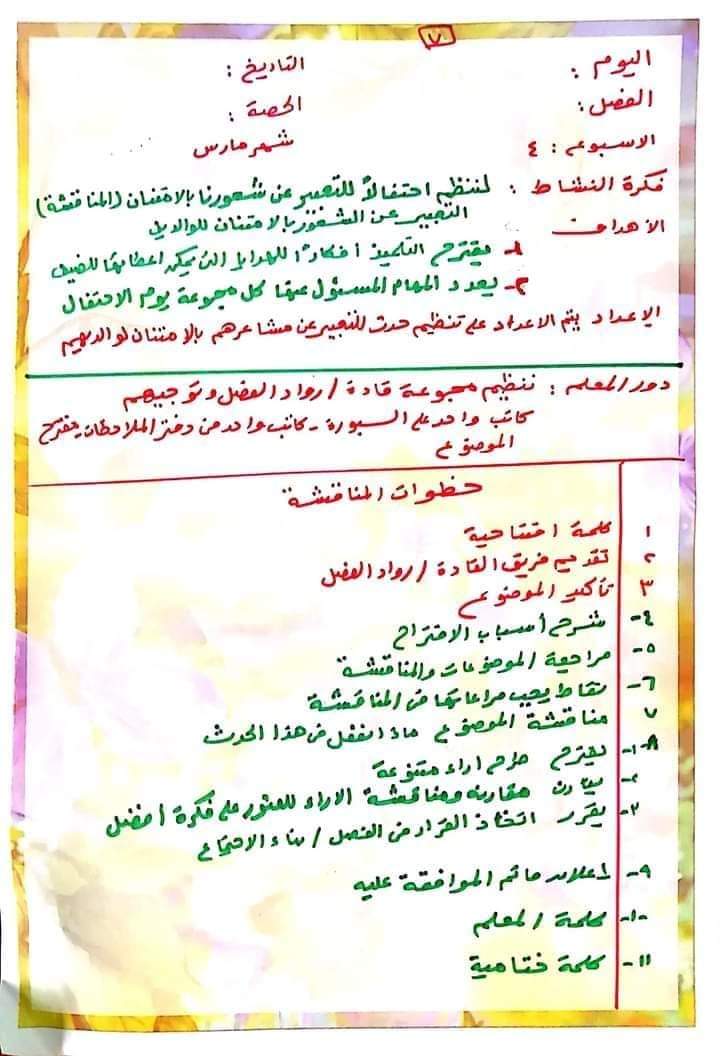 ٧
اليوم : التاريخ :
الفصل : الحصة :
الاسبوع : ٤ شهر مارس
فكرة النشاط : لننظم احتفالاً للتعبير عن شعورنا بالامتنان (المناقشة)
التعبير عن الشعور بالامتنان للوالدين
الأهداف
١- يقترح التلاميذ أفكارًا للهدايا التي يمكن اعطائها للضيوف
٢- يعدد المهام المسئول عنها كل مجموعة يوم الاحتفال
الإعداد يتم الاعداد على تنظيم حدث للتعبير عن مشاعرهم بالامتنان لوالديهم
دور المعلم : تنظيم مجموعة قادة / رواد الفصل وتوجيهم
كاتب واحد على السبورة - كاتب واحد من دفتر الملاحظات يقترح
الموضوع
خطوات المناقشة
١ كلمة افتتاحية
٢ تقديم فريق القادة / رواد الفصل
٣ تأكيد الموضوع
٤- شرح أسباب الاقتراح
٥- مراجعة الموضوعات والمناقشة
٦- نقاط يجب مراعاتها في المناقشة
٧ مناقشة الموضوع ماذا نفعل في هذا الحدث
٨-١- يقترح طرح اراء متنوعة
٢- يقارن مقارنة ومناقشة الاراء للعثور على فكرة أفضل
٣- يقرر اتخاذ القرار في الفصل / بناء الاجتماع
٩- إعلان ما تم الموافقة عليه
١٠- كلمة المعلم
١١- كلمة ختامية